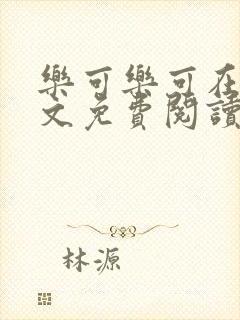 樂可樂可在
文免費閱讀
林源